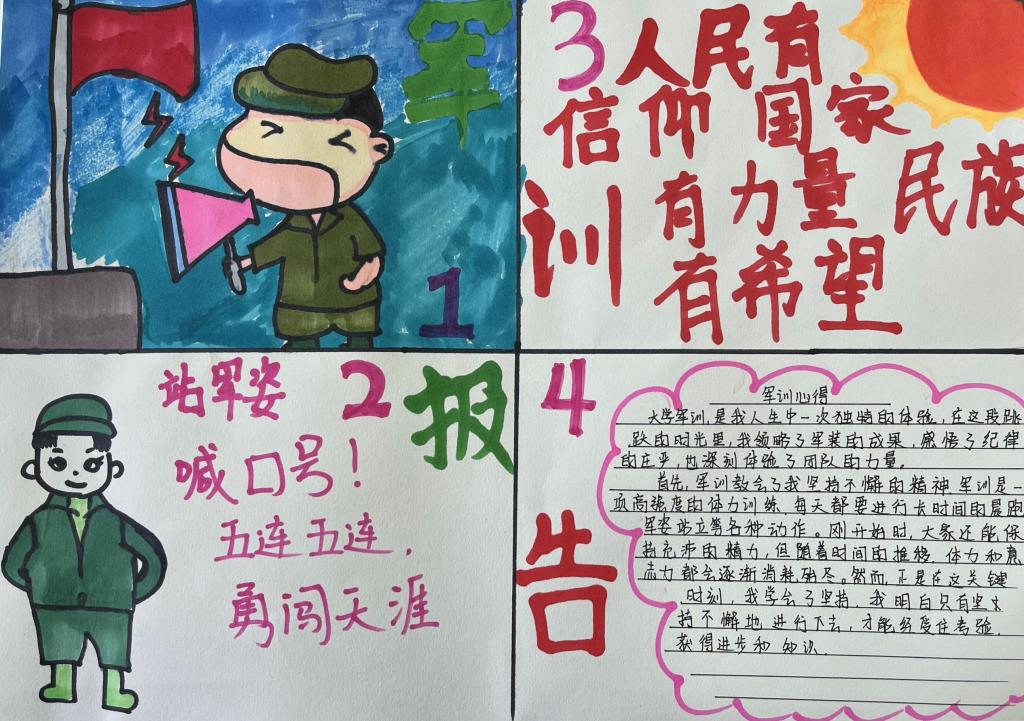 军
1
3
人民有
信仰 国家
训
有力量 民族
有希望
站军姿
2
报
喊口号!
五连五连,
勇闯天涯
4
告
军训心得
大学军训,是我人生中一次独特的体验,在这段
的时光里,我领略了军装的成果,感悟了纪律
的庄严,也深刻体验了团队的力量。
首先,军训教会了我坚持不懈的精神,军训是一
项高强度的体力训练,每天都要进行长时间的晨跑
军姿站立等各种动作。刚开始时,大家还能保
持充沛的精力,但随着时间的推移,体力和意
志力都会逐渐消耗殆尽。然而,正是在这关键
时刻,我学会了坚持,我明白只有坚
持不懈地进行下去,才能经受住考验.
获得进步和知识.